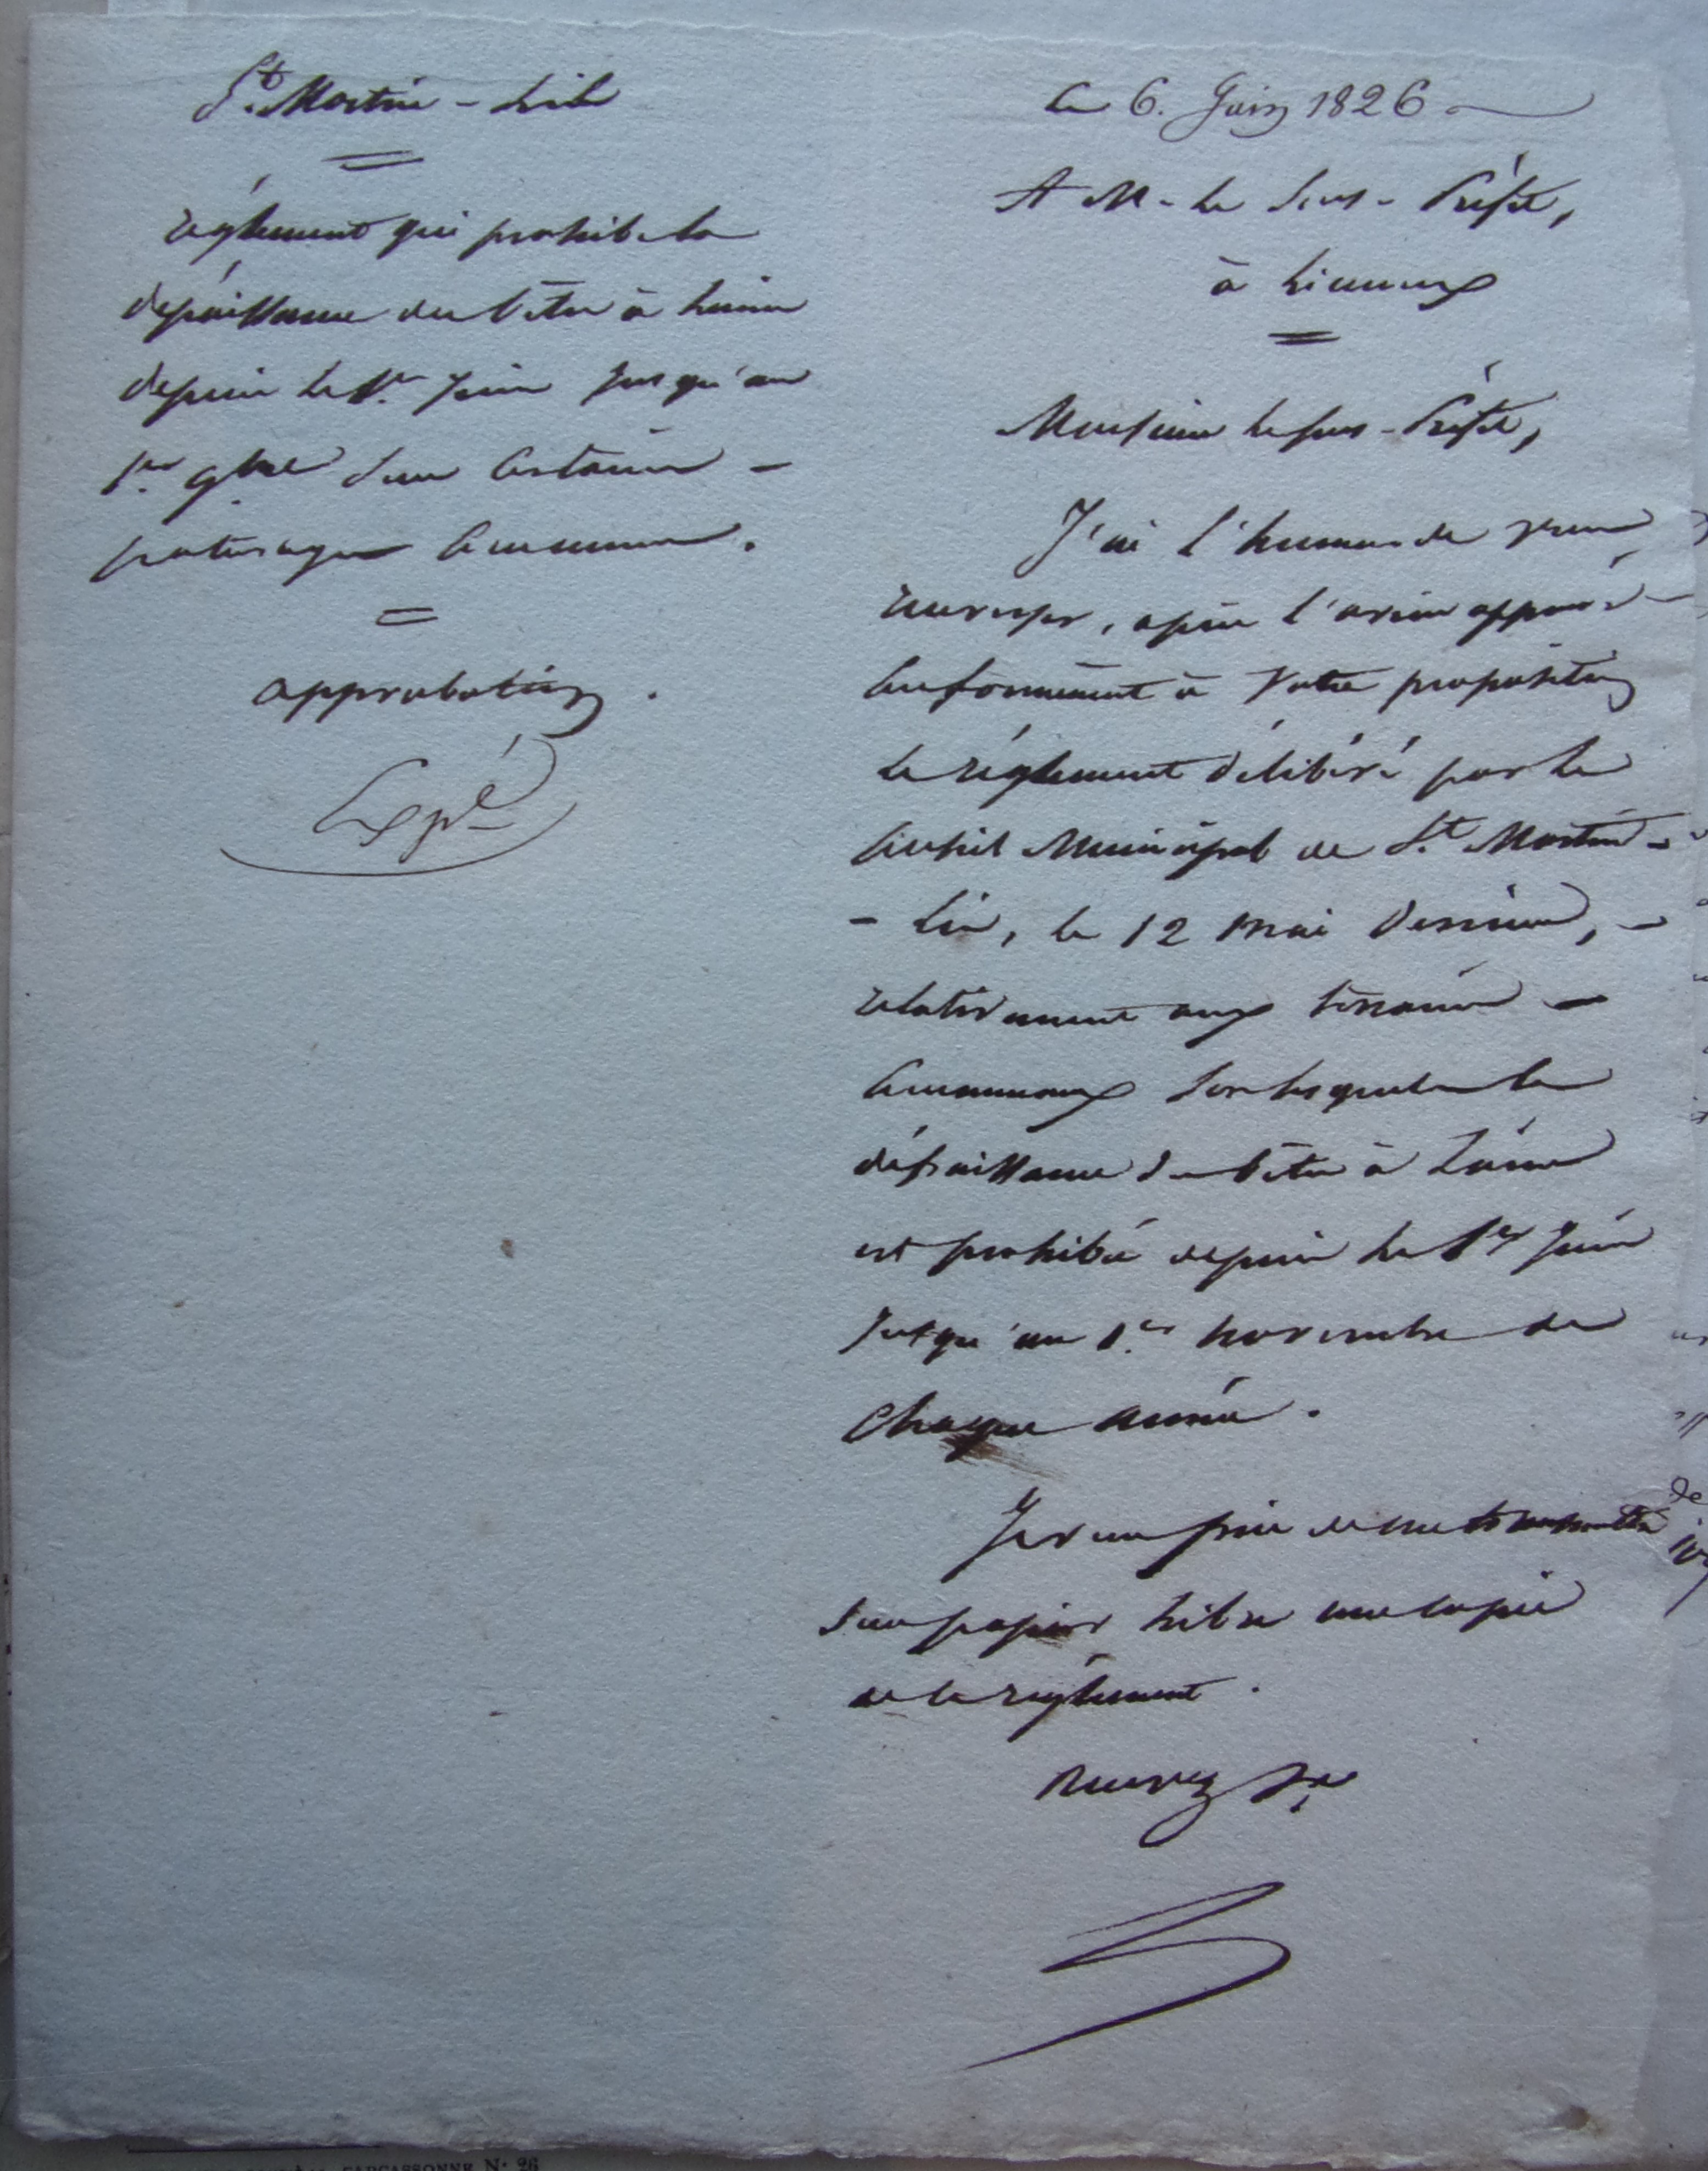 St. Martin - Lis
règlement qui prohibe la
dépaissance des bêtes à laine
depuis le 1er. Juin jusqu'au
1er. 9bre sur certains -
paturages communs.
approbation.
Expé
Le 6. Juin 1826
A M. le Sous-Préfet,
à Limoux
Monsieur le sous-Préfet,
J'ai l'honneur de vous
renvoyer, après l'avoir approuvé -
conformément à votre proposition
le règlement délibéré par le
Conseil Municipal de St. Martin -
- Lis, le 12 mai dernier, -
relativement aux terrains -
communaux sur lesquels la
dépaissance des bêtes à Laine
est prohibée depuis le 1er Juin
jusqu'au 1er. novembre de
chaque année.
Je vous prie de me transmettre
sur papier libre une copie
de ce règlement.
Recevez &a
CARCASSONNE N° 26